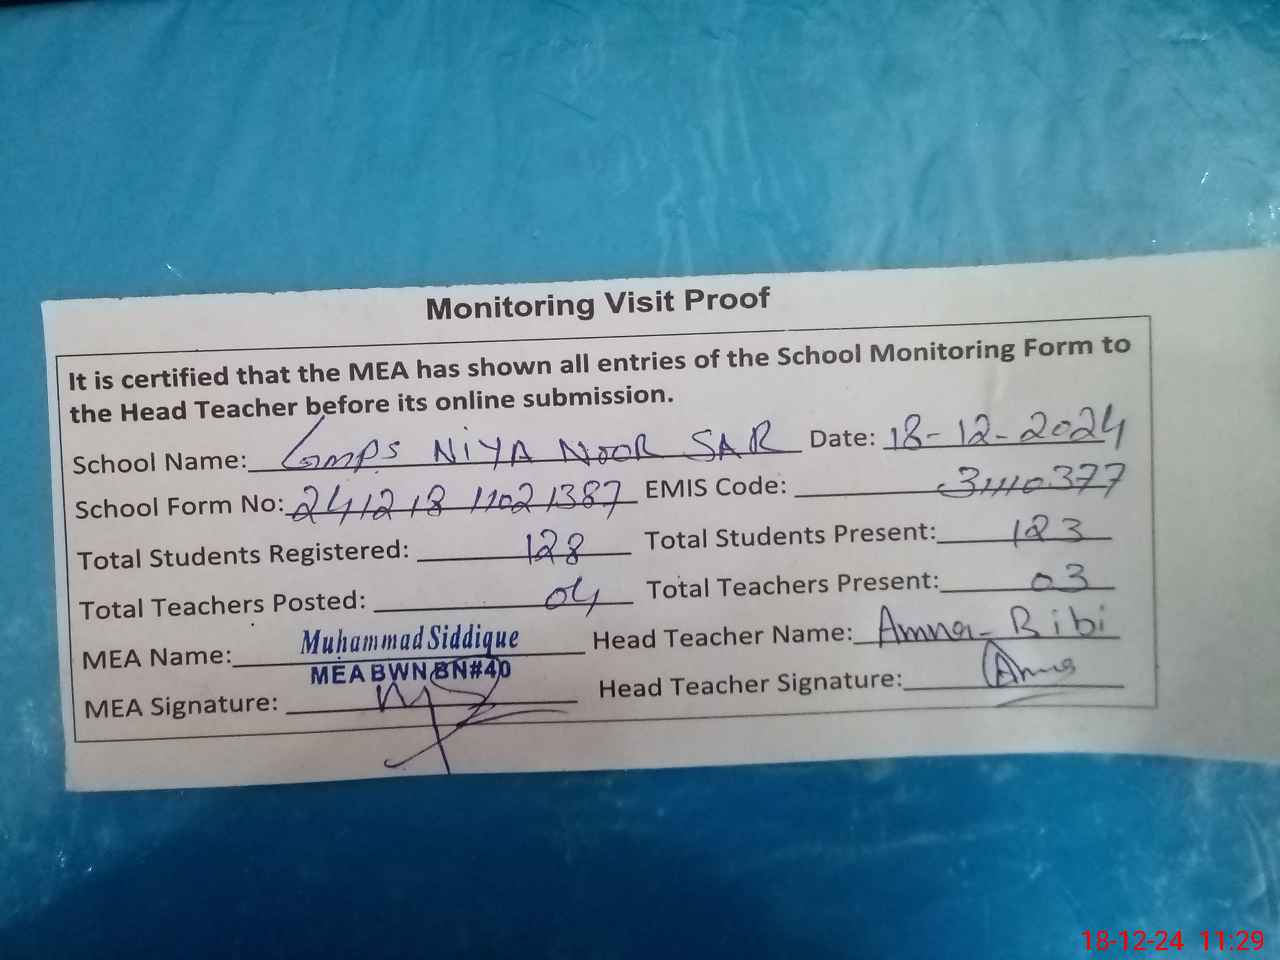 Monitoring Visit Proof
It is certified that the MEA has shown all entries of the School Monitoring Form to
the Head Teacher before its online submission.
School Name: GMPS NiYA NOOR SAR Date: 18-12-2024
School Form No: 241218 11021387 EMIS Code: 31110377
Total Students Registered: 128 Total Students Present: 123
Total Teachers Posted: 04 Total Teachers Present: 03
MEA Name: Muhammad Siddique Head Teacher Name: Amna Bibi
MEA BWN BN#40
MEA Signature: Head Teacher Signature: Amna
18-12-24 11:29